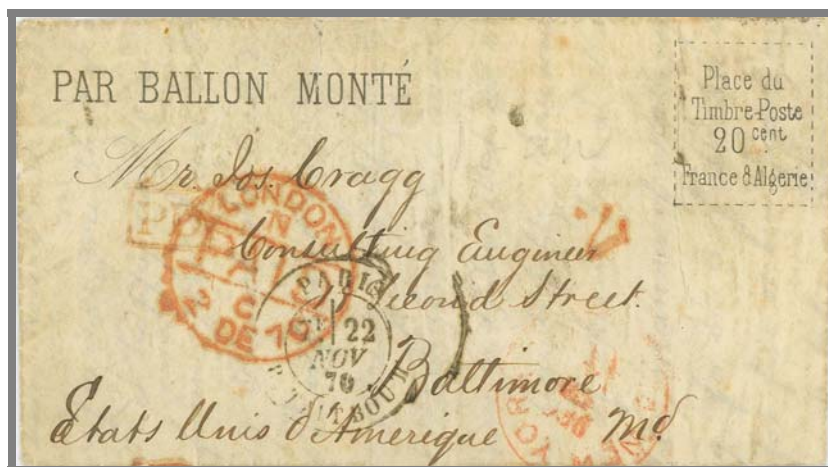 PAR BALLON MONTÉ
Place du
Timbre-Poste
20 cent
France & Algerie
Mr. Jos. Cragg
Consulting Engineer
Second Street.
Baltimore
Etats Unis d'Amerique Md
LONDON
N
PAID
2 C
DE 70
PARIS
22
NOV
70